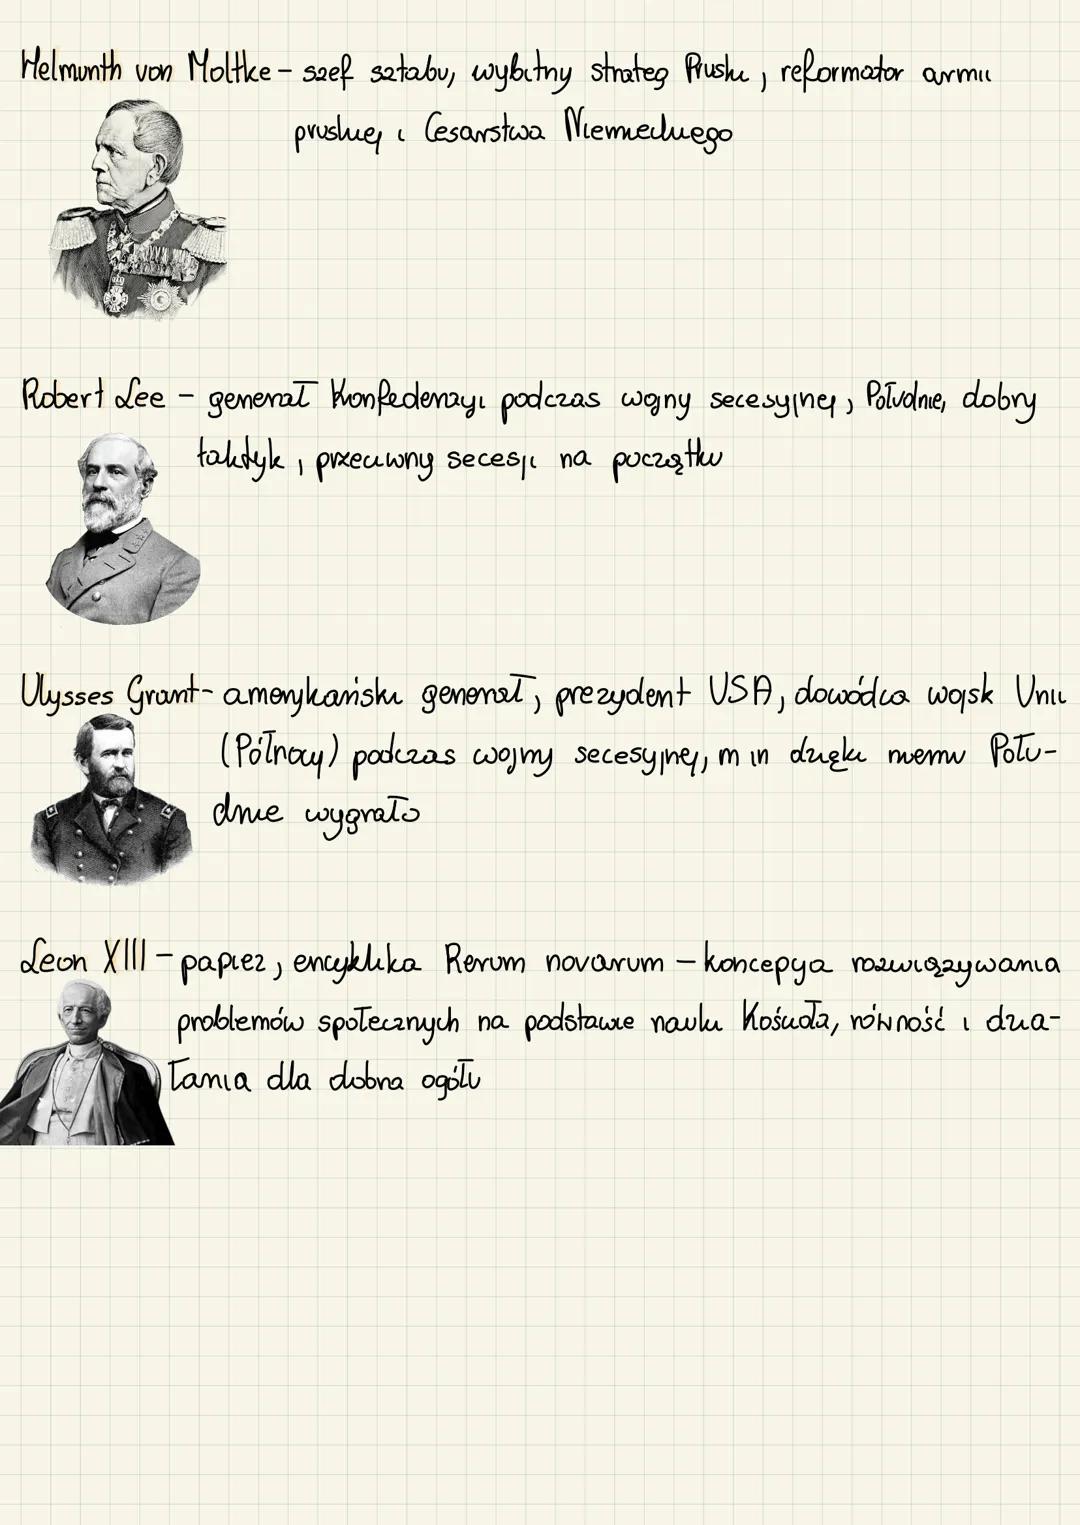 Helmunth von Moltke – szef sztabu, wybitny strateg Pruski, reformator armii
pruskiej i Cesarstwa Niemieckiego
Robert Lee – generał Konfederacyi podczas wojny secesyjnej, Południe, dobry
taktyk, przeciwny secesji na początku
Ulysses Grant – amerykański generał, prezydent USA, dowódca wojsk Unii
(Północy) podczas wojny secesyjnej, m in dzięki niemu Połu-
dnie wygrało
Leon XIII – papież, encyklika Rerum novarum – koncepcja rozwiązywania
problemów społecznych na podstawie nauki Kościoła, równość i dzia-
łania dla dobra ogółu